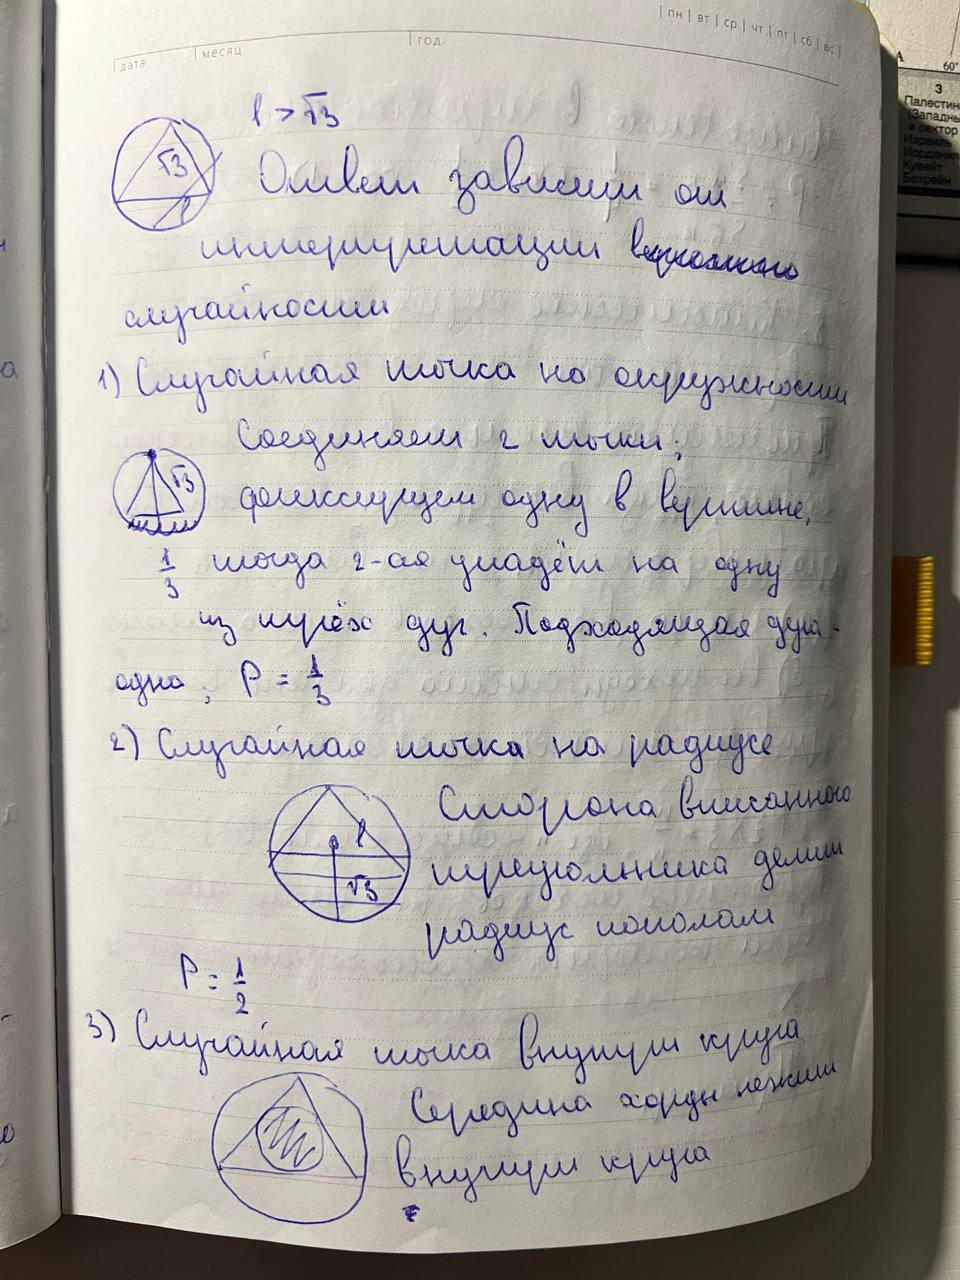 пн вт ср чт пт сб вс
дата месяц год
l > √3
√3
l
Ответ зависит от
интерпретации
случайности
1) Случайная точка на окружности
Соединяем 2 точки;
√3
фиксируем одну в вершине,
1/3 тогда 2-ая упадёт на одну
из трёх дуг. Подходящая дуга -
одна, P = 1/3
2) Случайная точка на радиусе
Сторона вписанного
l
треугольника делит
√3
радиус пополам
P = 1/2
3) Случайная точка внутри круга
Середина хорды лежит
внутри круга
A
60°
3
Палестин
(Западны
и сектор
Израиль
Иордания
Кувейт
Бахрейн